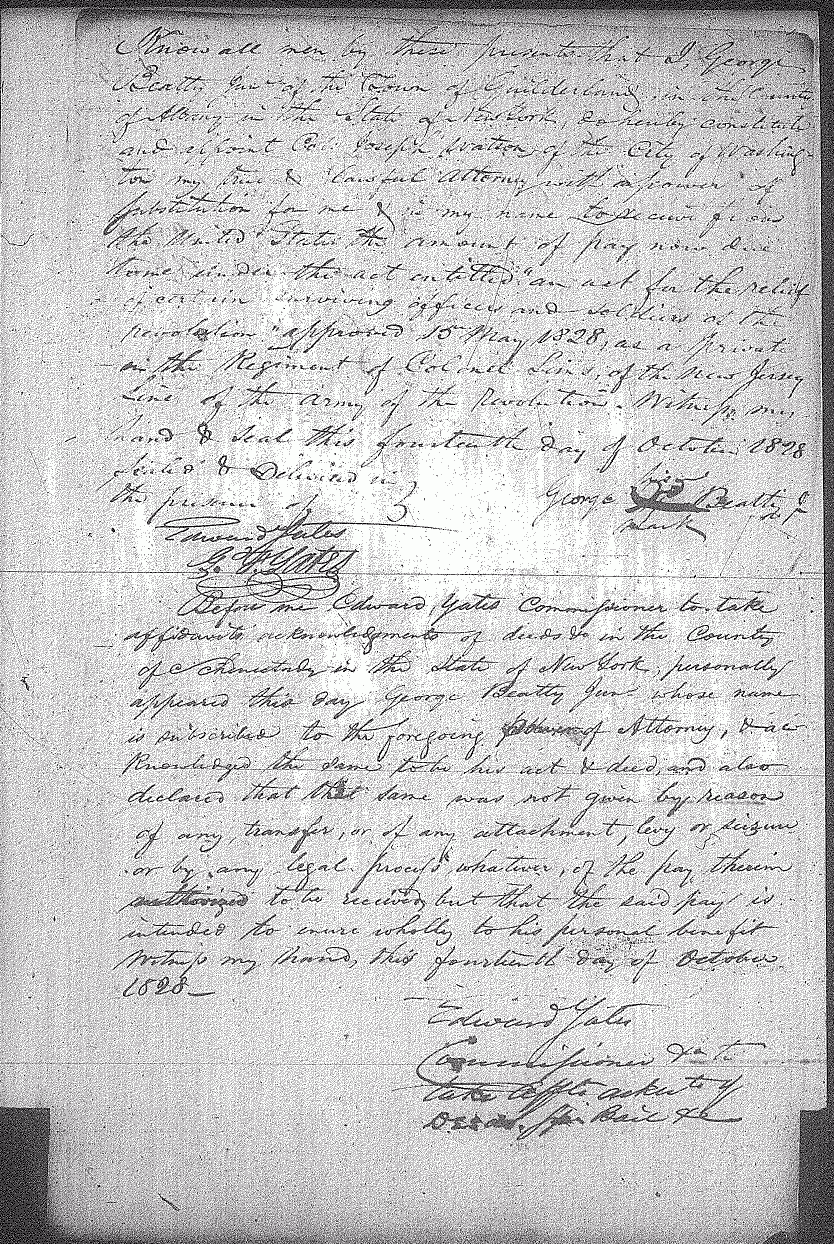 Know all men by these presents that I, George
Beatty Junr of the Town of Guilderland, in the County
of Albany in the State of New York, do hereby constitute
and appoint Col. Joseph Watson, of the City of Washing-
ton my true & lawful Attorney with power of
substitution for me & in my name to receive from
the United States the amount of pay now due
to me under the act entitled "an act for the relief
of certain surviving officers and soldiers of the
revolution" approved 15 May 1828, as a private
in the Regiment of Colonel, of the New Jersey
Line of the army of the Revolution. Witness my
hand & seal this fourteenth day of October 1828
Sealed & Delivered in
the presence of
George his Beatty Jr
mark
Edward Yates
G. Yates
Before me Edward Yates Commissioner to take
affidavits acknowledgments of deeds &c in the County
of Schenectady in the State of New York, personally
appeared this day George Beatty Junr whose name
is subscribed to the foregoing power of Attorney, & ac
knowledged the same to be his act & deed, and also
declared that that same was not given by reason
of any transfer, or of any attachment, levy or seizure
or by any legal process whatever, of the pay therein
authorized to be received, but that the said pay is
intended to enure wholly to his personal benefit
Witness my hand, this fourteenth day of October
1828_
Edward Yates
Commissioner &c to
take of
Deeds, Bail &c